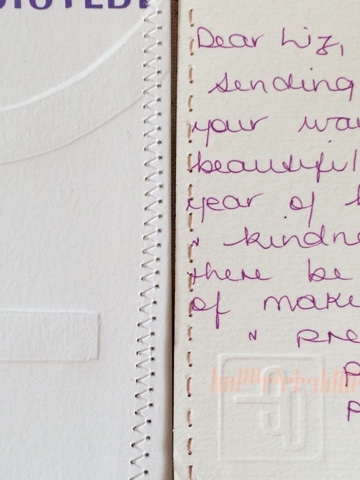 Dear Liz,
sending
your
beautiful
year of
kindne
there be
of make
pre
p
p